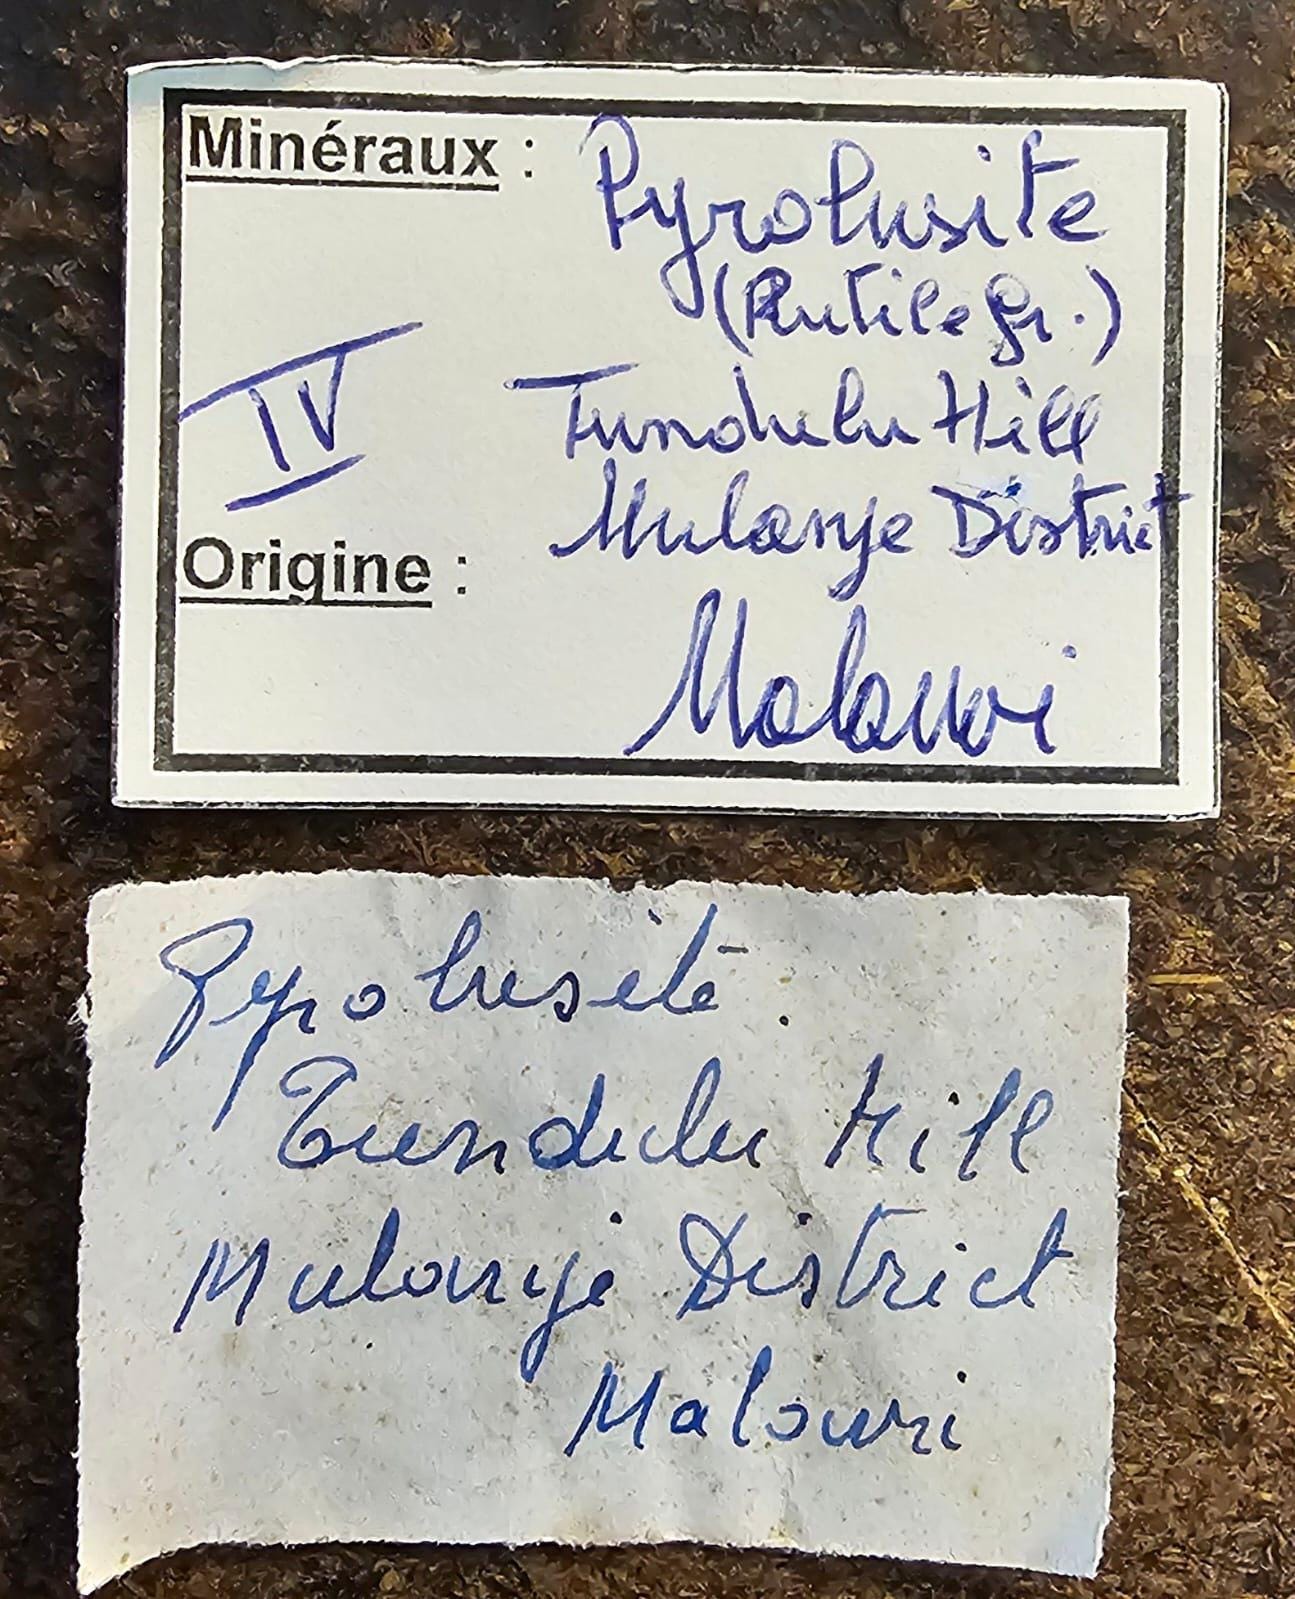 Minéraux : Pyrolusite
(Rutile gr.)
IV
Tundulu Hill
Mulanje District
Origine :
Malawi
Pyrolusite.
Tundulu Hill
Mulanje District
Malawi